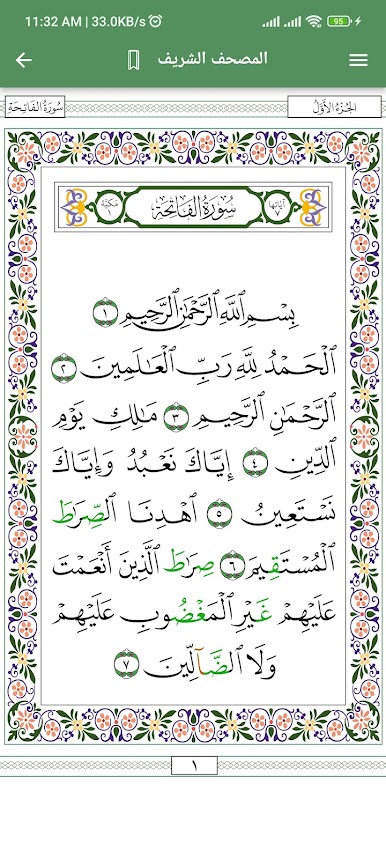 11:32 AM | 33.0KB/s
95
المصحف الشريف
الجزء الأول
سورة الفاتحة
آياتها ٧
سورة الفاتحة
مكية ١
بِسْمِ اللَّهِ الرَّحْمَٰنِ الرَّحِيمِ ١
الْحَمْدُ لِلَّهِ رَبِّ الْعَالَمِينَ ٢
الرَّحْمَٰنِ الرَّحِيمِ ٣ مَالِكِ يَوْمِ
الدِّينِ ٤ إِيَّاكَ نَعْبُدُ وَإِيَّاكَ
نَسْتَعِينُ ٥ اهْدِنَا الصِّرَاطَ
الْمُسْتَقِيمَ ٦ صِرَاطَ الَّذِينَ أَنْعَمْتَ
عَلَيْهِمْ غَيْرِ الْمَغْضُوبِ عَلَيْهِمْ
وَلَا الضَّآلِّينَ ٧
١